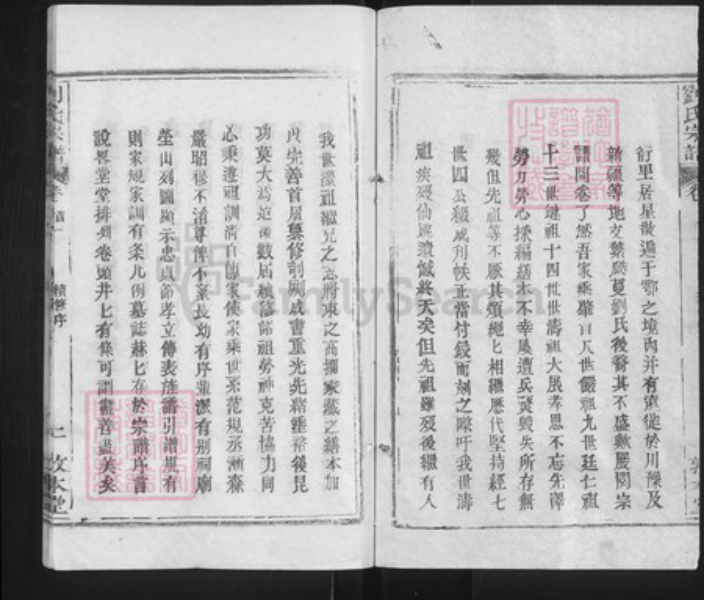 劉氏宗譜
衍里居星散遍于鄂之境內并有遷徙於川豫及
新疆等地支繁蔓劉氏後裔其不盛歟閱宗
譜開卷了然吾家乘肇自八世嚴祖九世廷仁祖
十三世繼祖十四世世濤祖大展孝思不忘先澤
勞力勞心採編繕本不幸屢遭兵燹毀失所存無
幾但先祖等不厭其煩繩匕相繼歷代堅持經七
世四公綴成刋帙正當付鋟而刻之際吁我世濤
祖疾歿仙逝遺憾終天矣但先祖雖歿後繼有人
我世濯祖繼兄之志將束之高擱家藏之繕本加
以完善首屆纂修剞劂成書重光先緒垂裕後昆
功莫大焉迨後數届續修諸祖勞神克苦協力同
心乘遵祖訓清白傳家使家乘世系范規丞漸森
嚴昭穆不淆尊俾不紊長幼有序輩派有別祠廟
塋山列圖顯示忠貞節孝立傳表旌諧引譜規有
則家規家訓有条凡例墓誌赫匕存於宗譜序言
說畧堂堂排列卷頭井匕有條可謂盡善盡美矣
氏宗譜
卷首一
續修序
二
敦本堂
FamilySearch